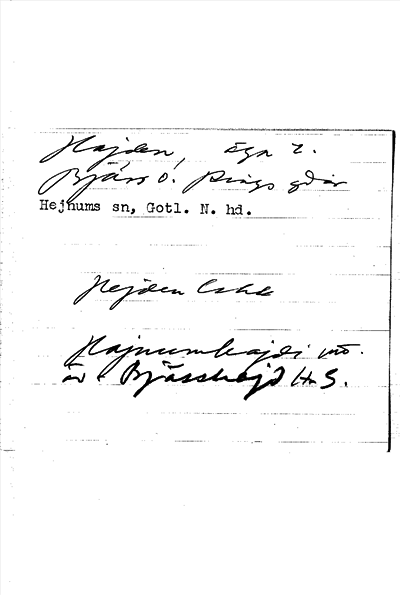 Hajden, Äga 2.
Bjärs o. Rings gdar
Hejnums sn, Gotl. N. hd.
Hejden
Hajnumhajdi
äv. Bjärshajd H S.